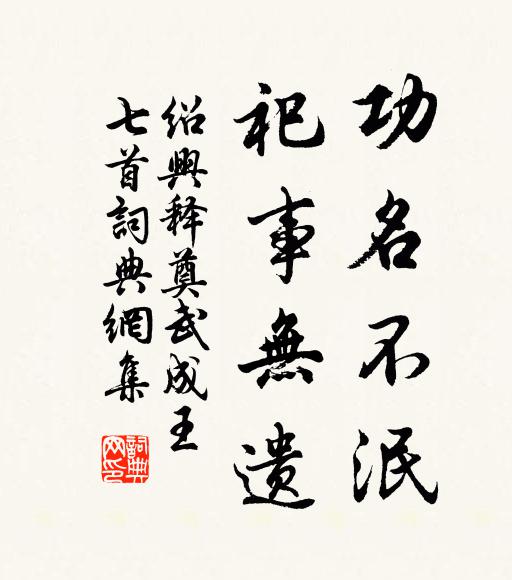 功名不泯
祀事無遺
绍興释奠武成王
七首詞典網集
詞典
网印